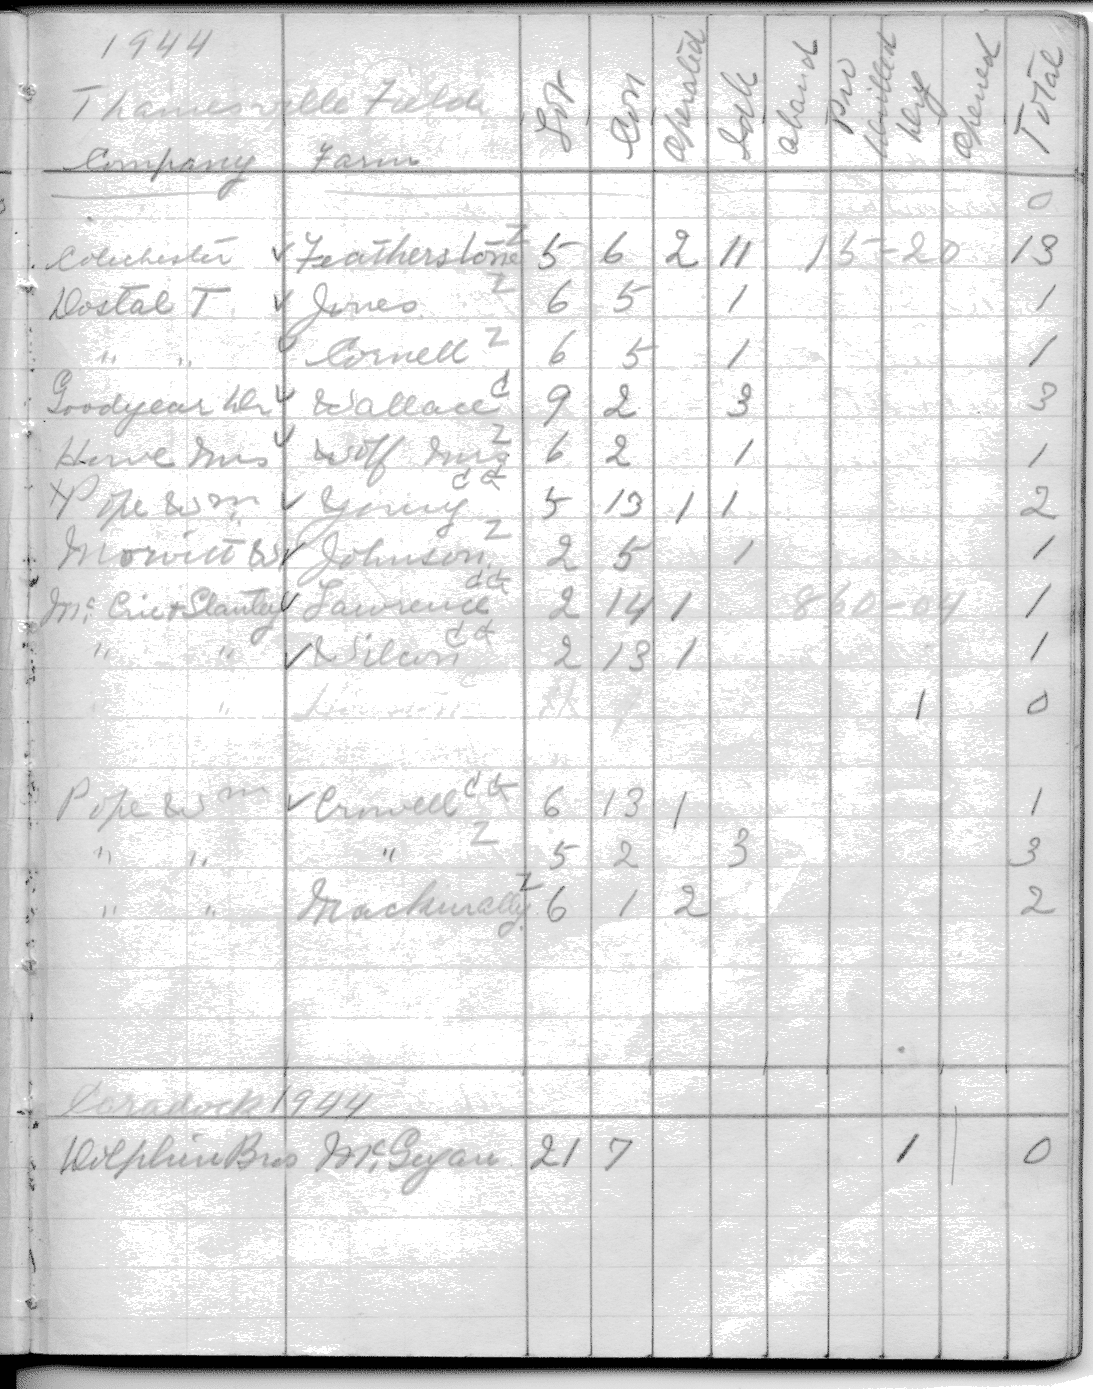 1944
Thamesville Field
Company Farm Lot Con Operated Idle Aband Pro Drilled Dry Opened Total
0
Colchester ✓ Featherstone Z 5 6 2 11 15-20 13
Dostal T ✓ Jones Z 6 5 1 1
" " ✓ Cornell Z 6 5 1 1
Goodyear ✓ Wallace d 9 2 3 3
✓ Wolf Mrs Z 6 2 1 1
Pope Wm ✓ Young d d 5 13 1 1 2
✓ Johnson Z 2 5 1 1
Mc ✓ Lawrence d d 2 14 1 860-04 1
" " ✓ d d 2 13 1 1
" 1 0
Pope Wm ✓ Crowell d d 6 13 1 1
" " " Z 5 2 3 3
" " Z 6 1 2 2
Caradock 1944
Dolphin Bros 21 7 1 0